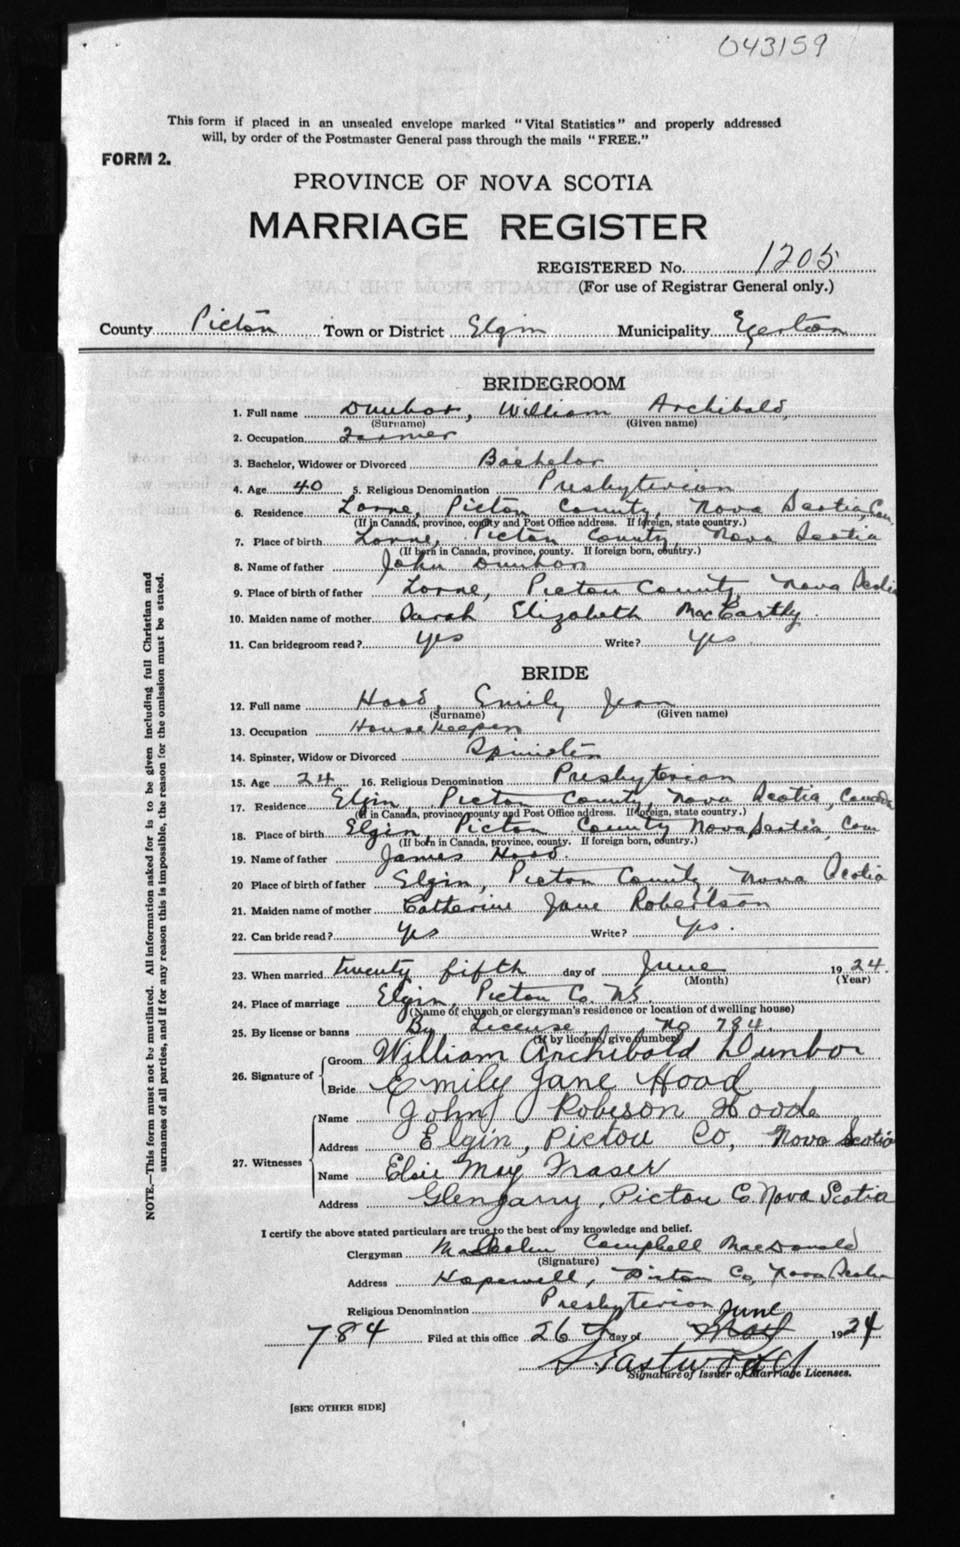 043159
This form if placed in an unsealed envelope marked "Vital Statistics" and properly addressed
will, by order of the Postmaster General pass through the mails "FREE."
FORM 2.
PROVINCE OF NOVA SCOTIA
MARRIAGE REGISTER
REGISTERED No. 1205
(For use of Registrar General only.)
County Pictou Town or District Elgin Municipality Egerton
BRIDEGROOM
1. Full name Dunbar, William Archibald,
(Surname) (Given name)
2. Occupation Farmer
3. Bachelor, Widower or Divorced Bachelor
4. Age 40 5. Religious Denomination Presbyterian
6. Residence Lorne, Pictou County, Nova Scotia, Can.
(If in Canada, province, county and Post Office address. If foreign, state country.)
7. Place of birth Lorne, Pictou County, Nova Scotia
(If born in Canada, province, county. If foreign born, country.)
8. Name of father John Dunbar
9. Place of birth of father Lorne, Pictou County, Nova Scotia
10. Maiden name of mother Sarah Elizabeth MacCarthy
11. Can bridegroom read? Yes Write? Yes
BRIDE
12. Full name Hood, Emily Jean
(Surname) (Given name)
13. Occupation Housekeeper
14. Spinster, Widow or Divorced Spinster
15. Age 24 16. Religious Denomination Presbyterian
17. Residence Elgin, Pictou County, Nova Scotia, Canada
(If in Canada, province, county and Post Office address. If foreign, state country.)
18. Place of birth Elgin, Pictou County Nova Scotia, Can
(If born in Canada, province, county. If foreign born, country.)
19. Name of father James Hood.
20 Place of birth of father Elgin, Pictou County, Nova Scotia
21. Maiden name of mother Catherine Jane Robertson
22. Can bride read? Yes Write? Yes.
23. When married twenty fifth day of June 1924.
(Month) (Year)
24. Place of marriage Elgin, Pictou Co. N.S.
(Name of church or clergyman's residence or location of dwelling house)
25. By license or banns By License, No 784.
(If by license, give number)
26. Signature of Groom William Archibald Dunbar
Bride Emily Jane Hood
27. Witnesses Name John Robeson Hood
Address Elgin, Pictou Co, Nova Scotia
Name Elsie May Fraser
Address Glengarry, Pictou Co. Nova Scotia
I certify the above stated particulars are true to the best of my knowledge and belief.
Clergyman Malcolm Campbell MacDonald
(Signature)
Address Hopewell, Pictou Co, Nova Scotia
Religious Denomination Presbyterian
June
784 Filed at this office 26 day of May 1924
Signature of Issuer of Marriage Licenses.
[SEE OTHER SIDE]
NOTE.—This form must not be mutilated. All information asked for is to be given including full Christian and
surnames of all parties, and if for any reason this is impossible, the reason for the omission must be stated.